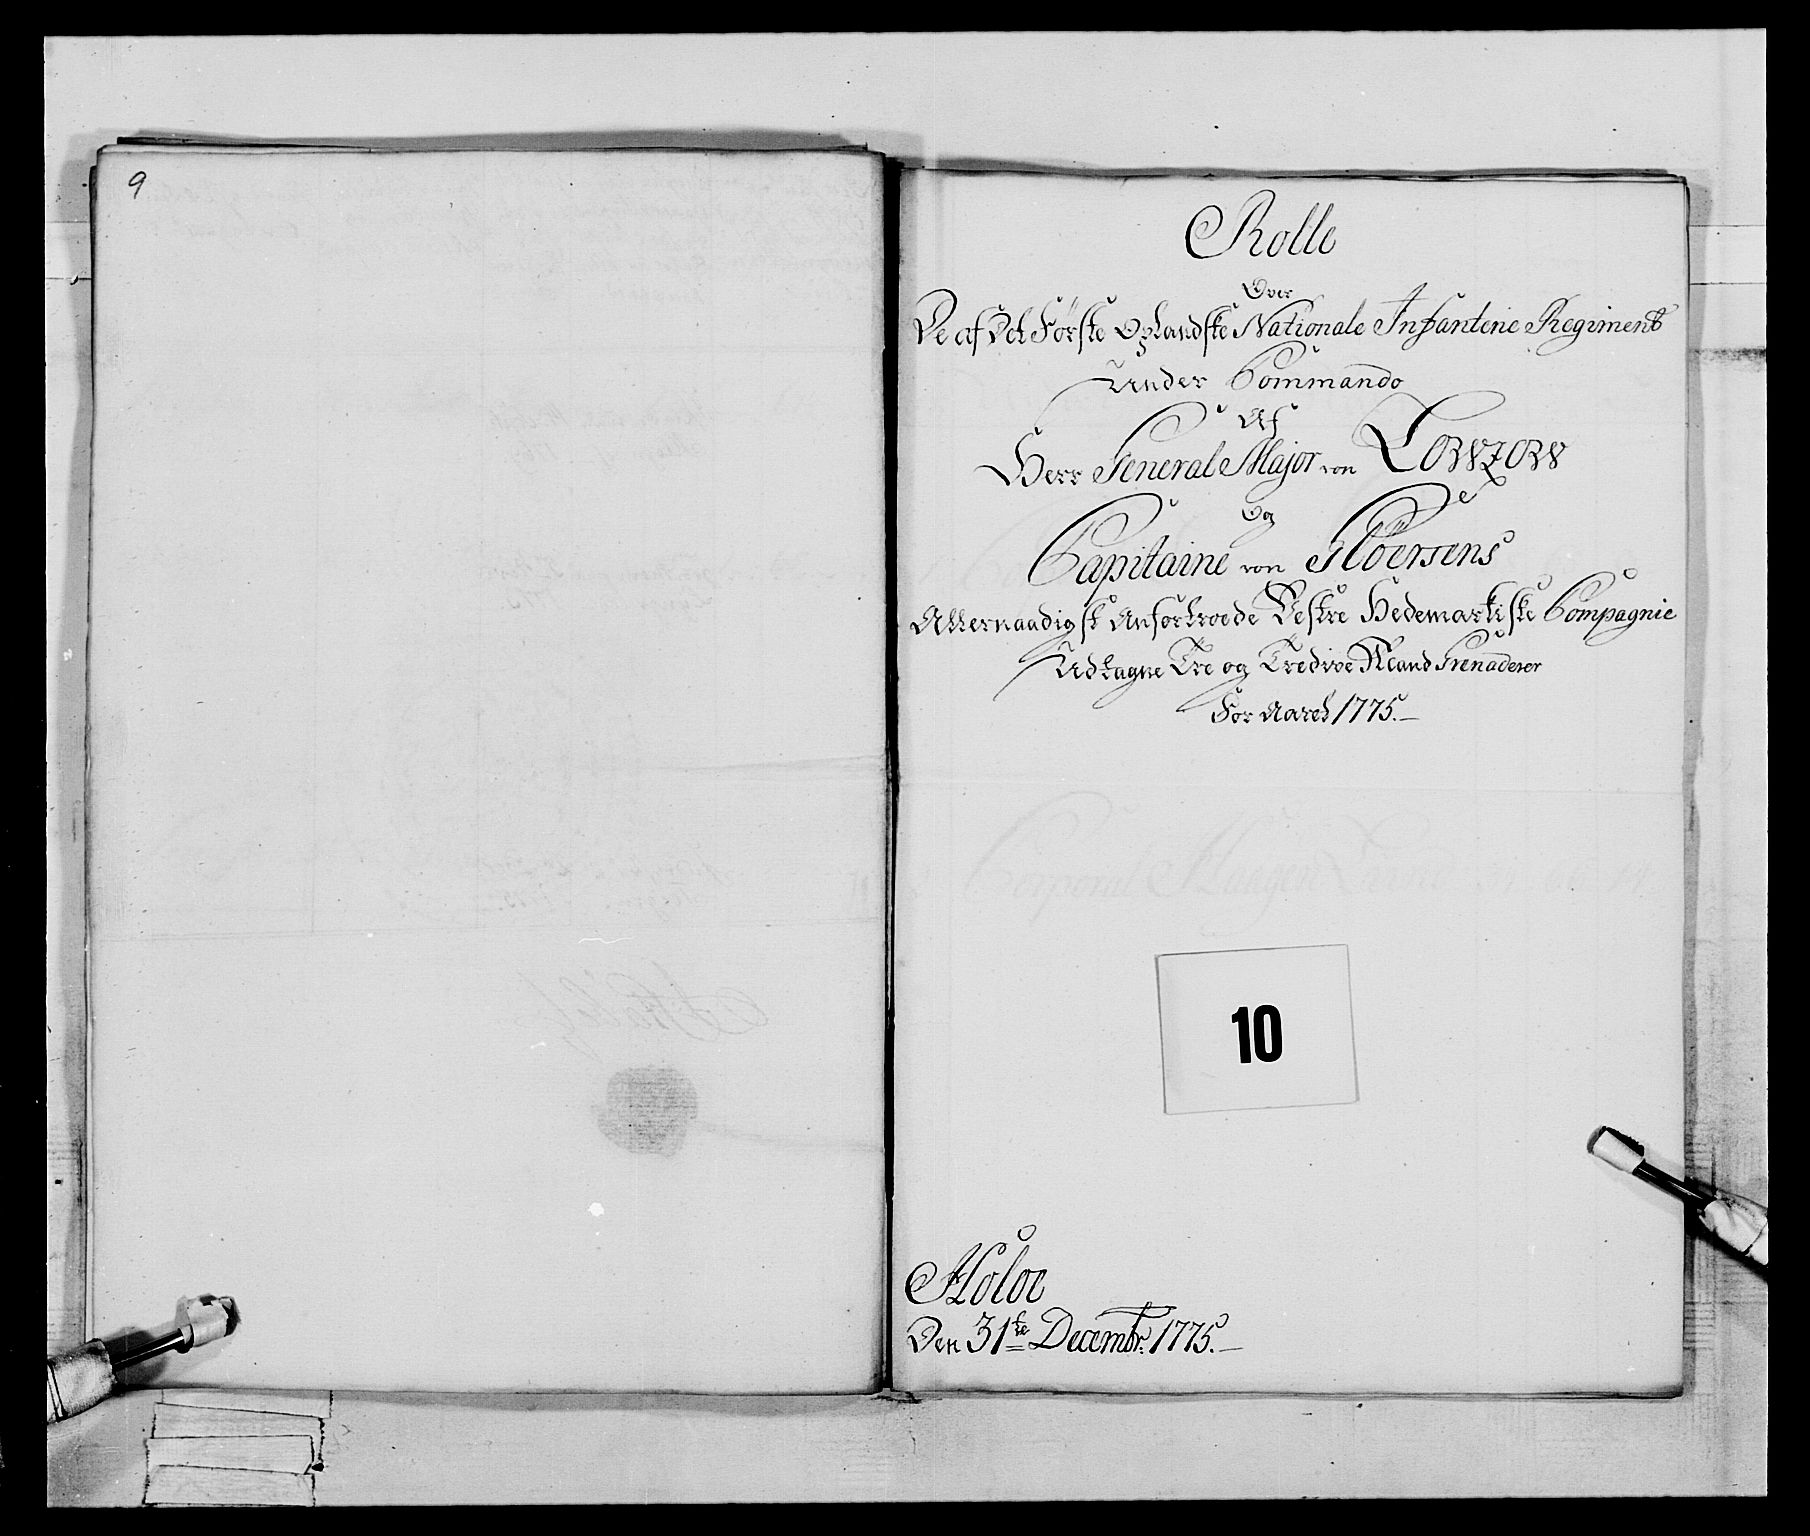 9
Rolle
Over
De af Det Første Oplandske Nationale Infanterie Regiment
Under Commando
Af
Herr General Major von Lowzow
Og
Capitaine von
Allernaadigst Anfortroede Vestre Hedemarkiske Compagnie
Udtagne Tre og Tredive Mand Grenaderer
For Aaret 1775.
10
Den 31te Decembr: 1775.